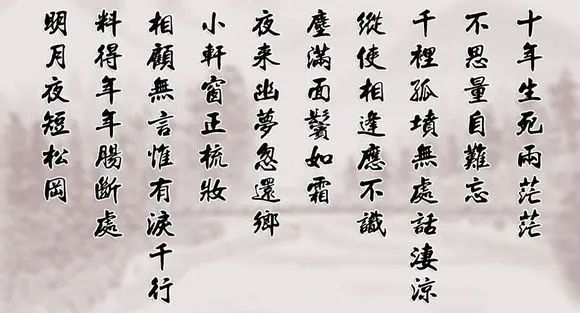 十年生死兩茫茫
不思量自難忘
千裡孤墳無處話淒涼
縱使相逢應不識
塵滿面鬢如霜
夜来幽夢忽還鄉
小軒窗正梳妝
相顧無言惟有淚千行
料得年年腸斷處
明月夜短松岡